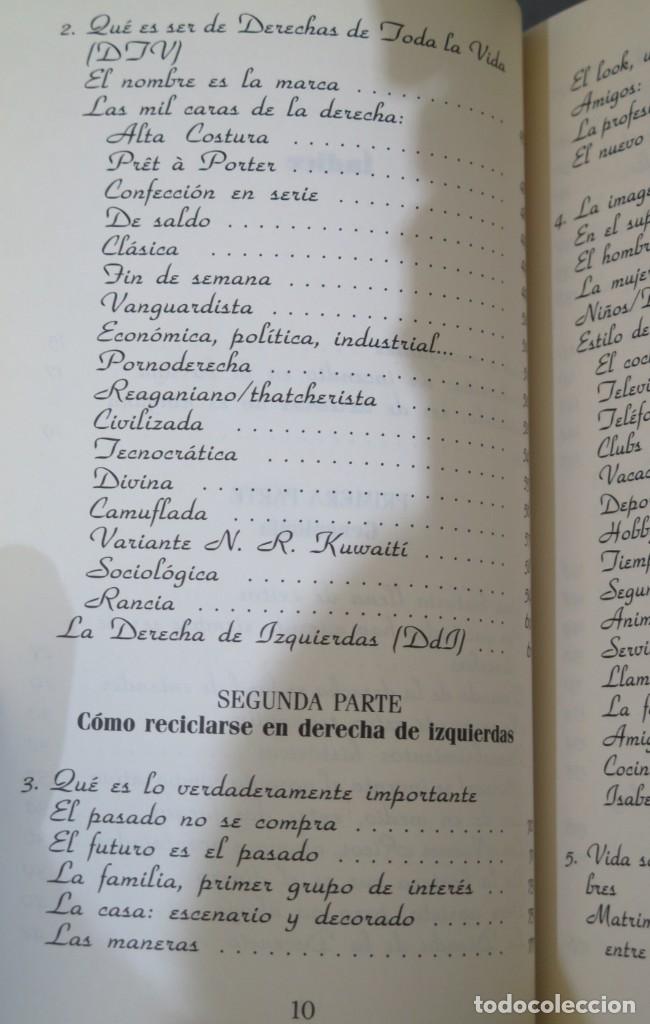 2. Qué es ser de Derechas de Toda la Vida
(DTV)
El nombre es la marca . . . . . . . . . .
Las mil caras de la derecha:
Alta Costura . . . . . . . . . . . .
Prêt à Porter . . . . . . . . . . . .
Confección en serie . . . . . . . . . .
De saldo . . . . . . . . . . . . . .
Clásica . . . . . . . . . . . . . .
Fin de semana . . . . . . . . . . . .
Vanguardista . . . . . . . . . . . .
Económica, política, industrial... . . .
Pornoderecha . . . . . . . . . . . .
Reaganiano/thatcherista . . . . . . .
Civilizada . . . . . . . . . . . . .
Tecnocrática . . . . . . . . . . . .
Divina . . . . . . . . . . . . . . .
Camuflada . . . . . . . . . . . . .
Variante N. R. Kuwaití . . . . . . .
Sociológica . . . . . . . . . . . . .
Rancia . . . . . . . . . . . . . . .
La Derecha de Izquierdas (DdI) . . .
SEGUNDA PARTE
Cómo reciclarse en derecha de izquierdas
3. Qué es lo verdaderamente importante
El pasado no se compra . . . . . . . .
El futuro es el pasado . . . . . . . . .
La familia, primer grupo de interés . . .
La casa: escenario y decorado . . . . .
Las maneras . . . . . . . . . . . . .
10
El look,
Amigos:
La
El nuevo
4. La
En el
El
La
Niños/
Estilo de
El
Clubs
Isabe
5. Vida
bres
entre
todocoleccion